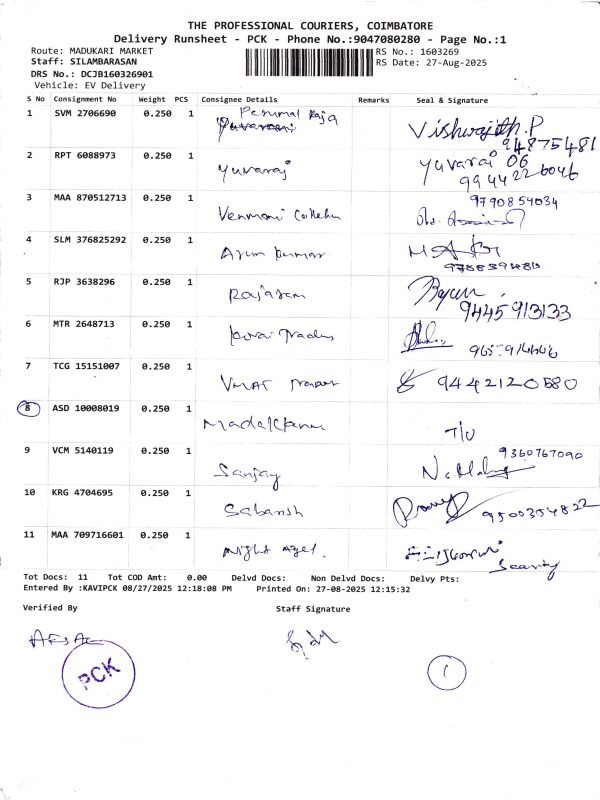 THE PROFESSIONAL COURIERS, COIMBATORE
Delivery Runsheet - PCK - Phone No.:9047080280 - Page No.:1
Route: MADUKARI MARKET RS No.: 1603269
Staff: SILAMBARASAN RS Date: 27-Aug-2025
DRS No.: DCJB160326901
Vehicle: EV Delivery
S No Consignment No Weight PCS Consignee Details Remarks Seal & Signature
1 SVM 2706690 0.250 1 Perumal Raja Vishwajith.P
94875481
2 RPT 6088973 0.250 1 Yuvaraj Yuvaraj 06
9944226046
3 MAA 870512713 0.250 1 Venmani 9790854034
4 SLM 376825292 0.250 1 Arun kumar
5 RJP 3638296 0.250 1 Rajaram
9445913133
6 MTR 2648713 0.250 1 Kovai Traders
7 TCG 15151007 0.250 1 VMAT 9442120580
8 ASD 10008019 0.250 1
T/U
9 VCM 5140119 0.250 1 Sanjay 9360767090
10 KRG 4704695 0.250 1 Sabansh 9500354822
11 MAA 709716601 0.250 1 Night Agel.
Tot Docs: 11 Tot COD Amt: 0.00 Delvd Docs: Non Delvd Docs: Delvy Pts:
Entered By :KAVIPCK 08/27/2025 12:18:08 PM Printed On: 27-08-2025 12:15:32
Verified By Staff Signature
PCK
1